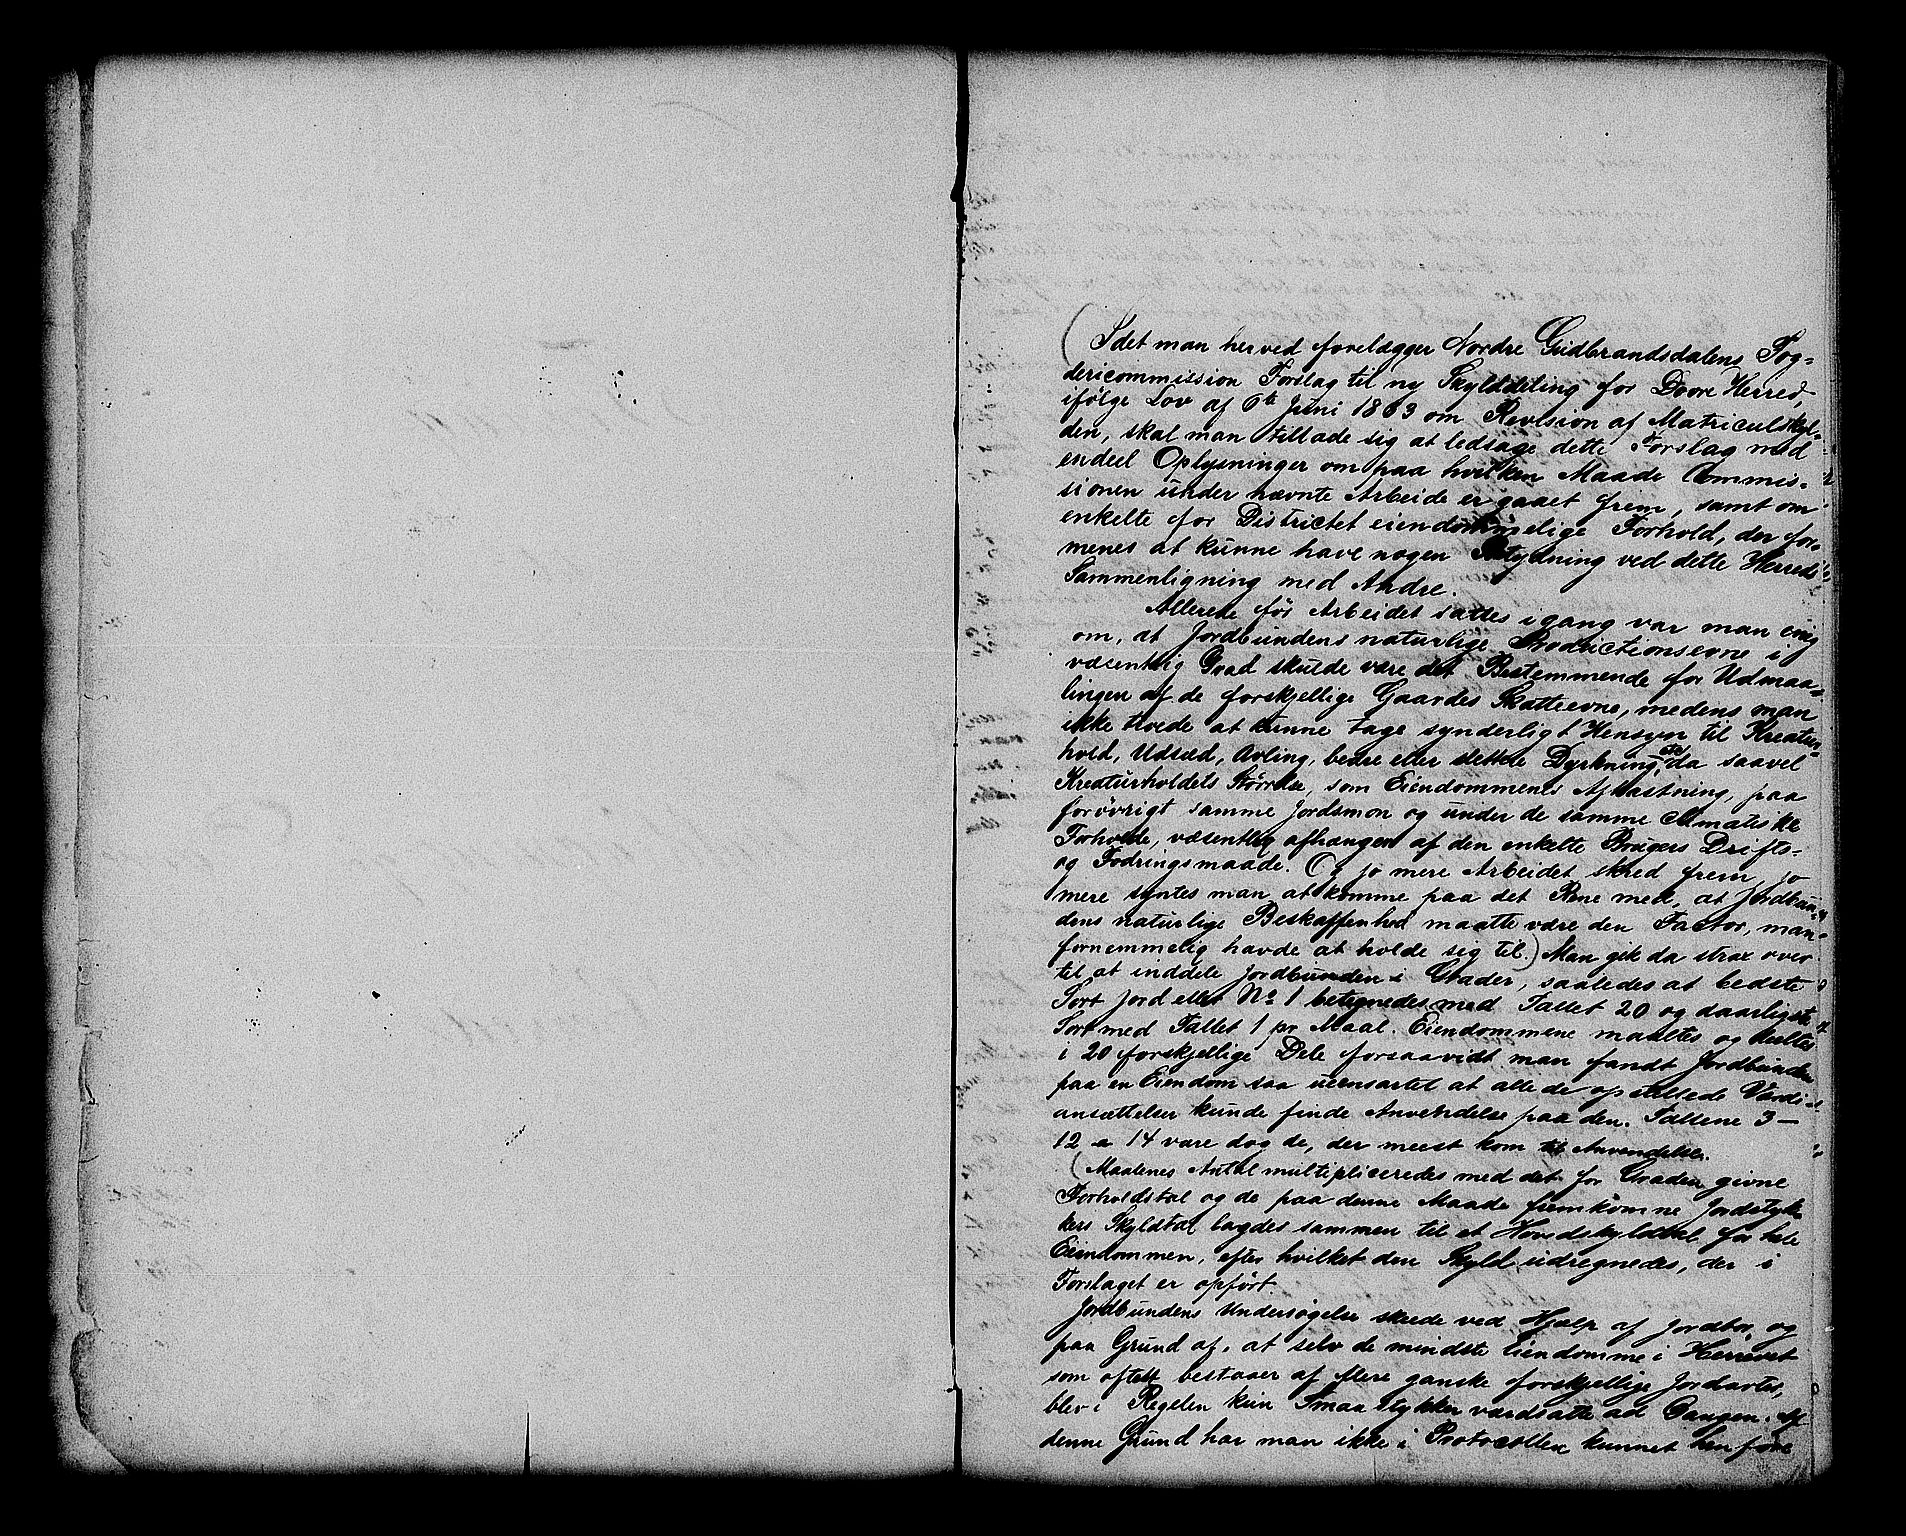 (Idet man herved forelægger Nordre Gudbrandsdalens Fog-
dericommission Forslag til ny Skylddeling for Dovre Herred,
ifølge Lov af 6te Juni 1863 om Revision af Matriculskyl-
den, skal man tillade sig at ledsage dette Forslag med
endeel Oplysninger om paa hvilken Maade Commis-
sionen under nævnte Arbeide er gaaet frem, samt om
enkelte for Districtet eiendommelige Forhold, der for-
menes at kunne have nogen Betydning ved dette Herreds
Sammenligning med Andre.
Allerede før Arbeidet sattes igang var man enig
om, at Jordbundens naturlige Productionsevne i
væsentlig Grad skulde være det Bestemmende for Udmaa-
lingen af de forskjellige Gaardes Skatteevne, medens man
ikke troede at kunne tage synderligt Hensyn til Kreatur-
hold, Udsæd, Avling, bedre eller slettere Dyrkning etc, da saavel
Kreaturholdets Størrelse, som Eiendommenes Afkastning, paa
forøvrigt samme Jordsmon og under de samme climatiske
Forholde, væsentlig afhænger af den enkelte Brugers Drifts-
og Fodringsmaade. Og jo mere Arbeidet skred frem, jo
mere syntes man at komme paa det Rene med, at Jordbun-
dens naturlige Beskaffenhed maatte være den Factor, man
fornemmelig havde at holde sig til.) Man gik da strax over
til at inddele Jordbunden i Grader, saaledes at bedste
Sort Jord eller No 1 betegnedes med Tallet 20 og daarligste
Sort med Tallet 1 pr Maal. Eiendommene maaltes og deeltes
i 20 forskjellige Dele forsaavidt man fandt Jordbunden
paa en Eiendom saa ueensartet at alle de opstillede Værdi-
ansættelser kunde finde Anvendelse paa den. Tallene 3-
12 a 14 vare dog de, der meest kom til Anvendelse.
(Maalenes Antal multipliceredes med det for Graden givne
Forholdstal og de paa denne Maade fremkomne Jordstyk-
kers Skyldtal lagdes sammen til et Hovedskyldtal for hele
Eiendommen, efter hvilket den Skyld udregnedes, der i
Forslaget er opført.
Jordbundens Undersøgelse skede ved Hjælp af Jordbor, og
paa Grund af, at selv de mindste Eiendomme i Herredet
som oftest bestaaer af flere ganske forskjellige Jordarter,
blev i Regelen kun Smaastykker værdsatte ad Gangen. Af
denne Grund har man ikke i Protocollen kunnet henføre